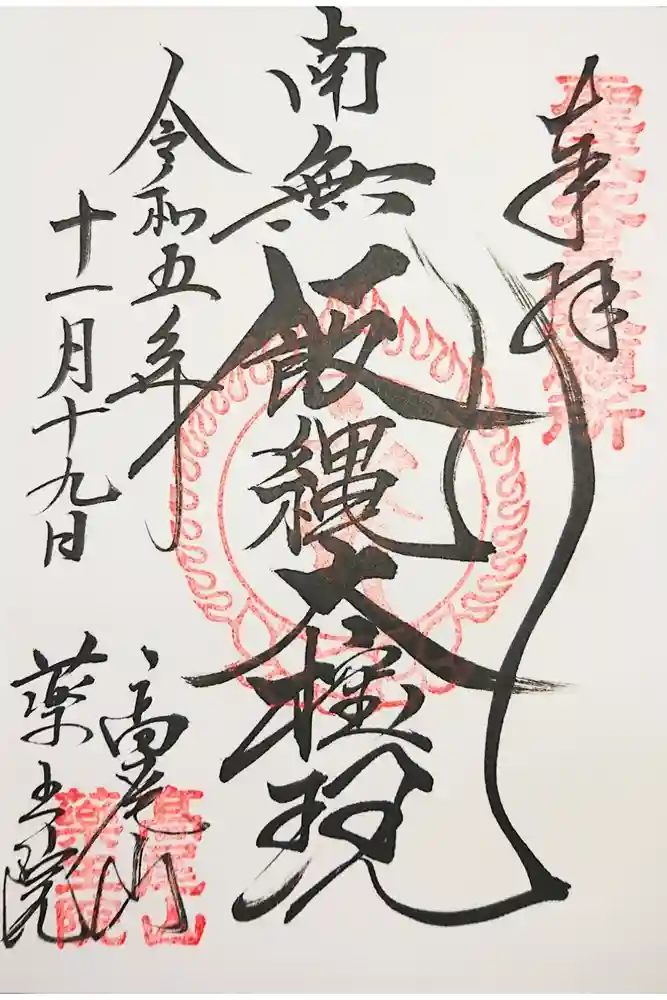 奉拝
南無飯縄大権現
令和五年
十一月十九日
高尾山
薬王院
高尾山
薬王院